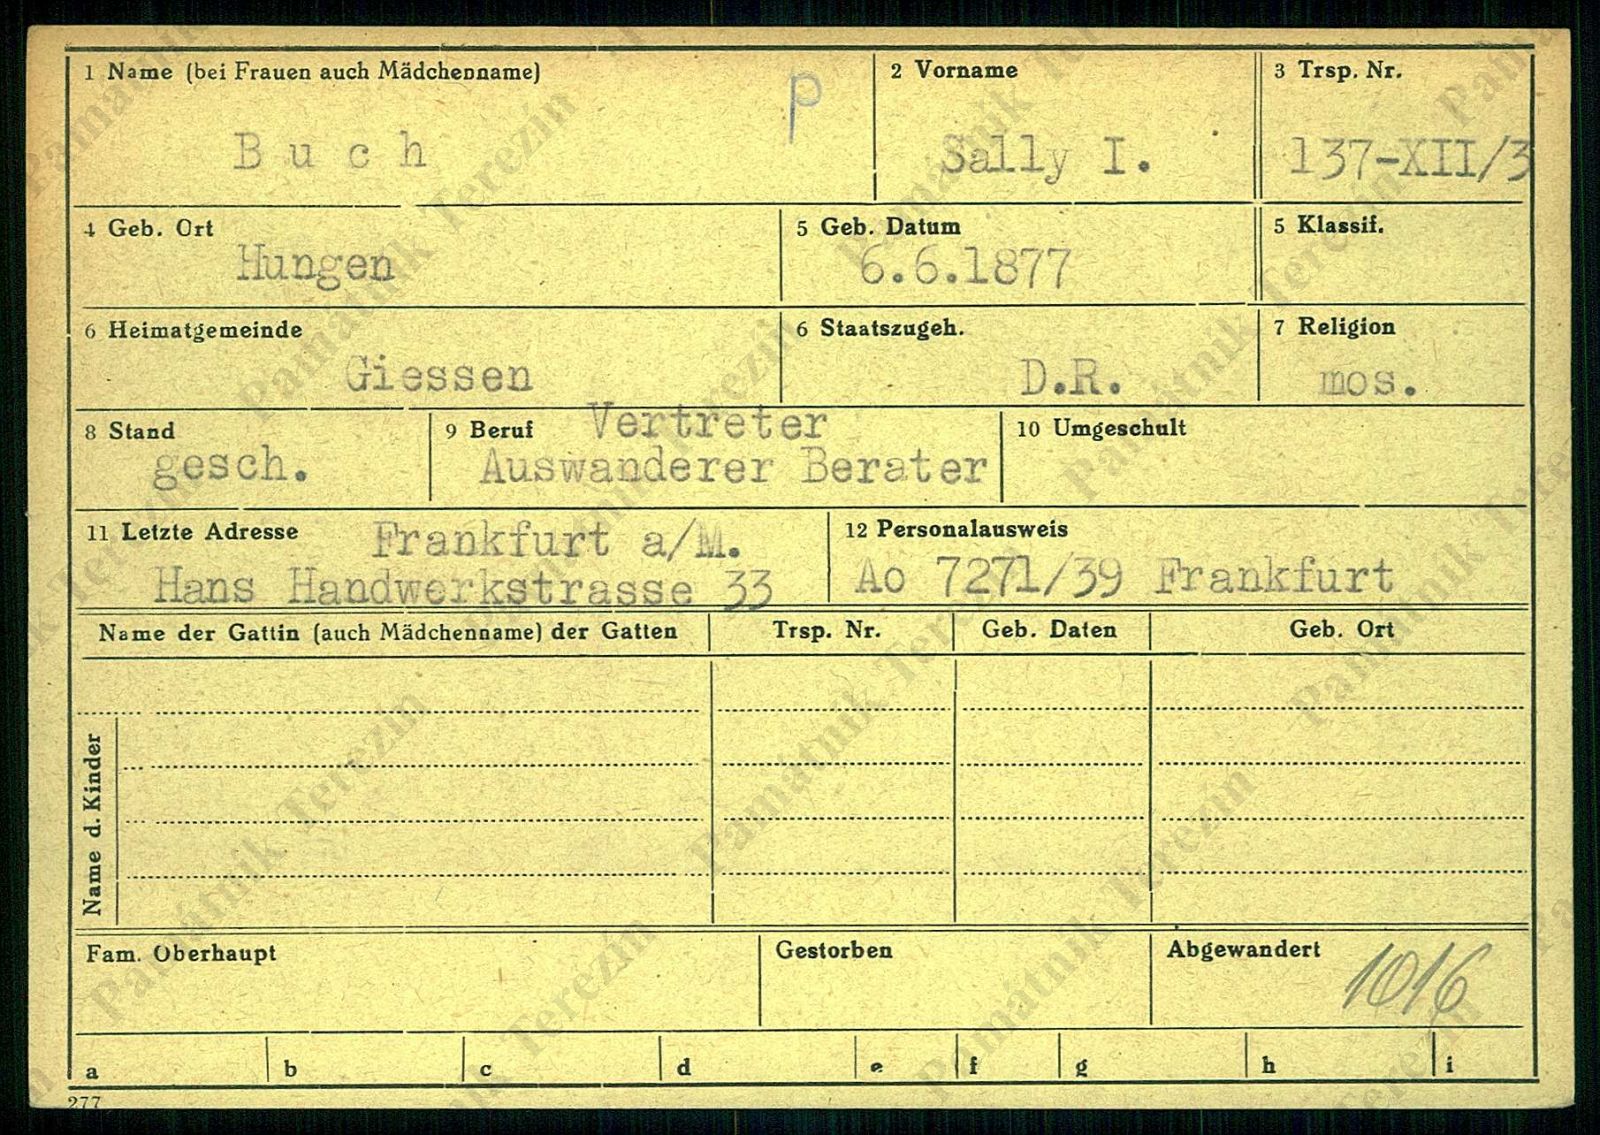 1 Name (bei Frauen auch Mädchenname)
P
2 Vorname
3 Trsp. Nr.
Buch
Sally I.
137-XII/3
4 Geb. Ort
5 Geb. Datum
5 Klassif.
Hungen
6.6.1877
6 Heimatgemeinde
6 Staatszugeh.
7 Religion
Giessen
D.R.
mos.
8 Stand
9 Beruf
Vertreter
10 Umgeschult
gesch.
Auswanderer Berater
11 Letzte Adresse
Frankfurt a/M.
12 Personalausweis
Hans Handwerkstrasse 33
Ao 7271/39 Frankfurt
Name der Gattin (auch Mädchenname) der Gatten
Trsp. Nr.
Geb. Daten
Geb. Ort
Name d. Kinder
Fam. Oberhaupt
Gestorben
Abgewandert
1016
a
b
c
d
e
f
g
h
i
277
Památník Terezín